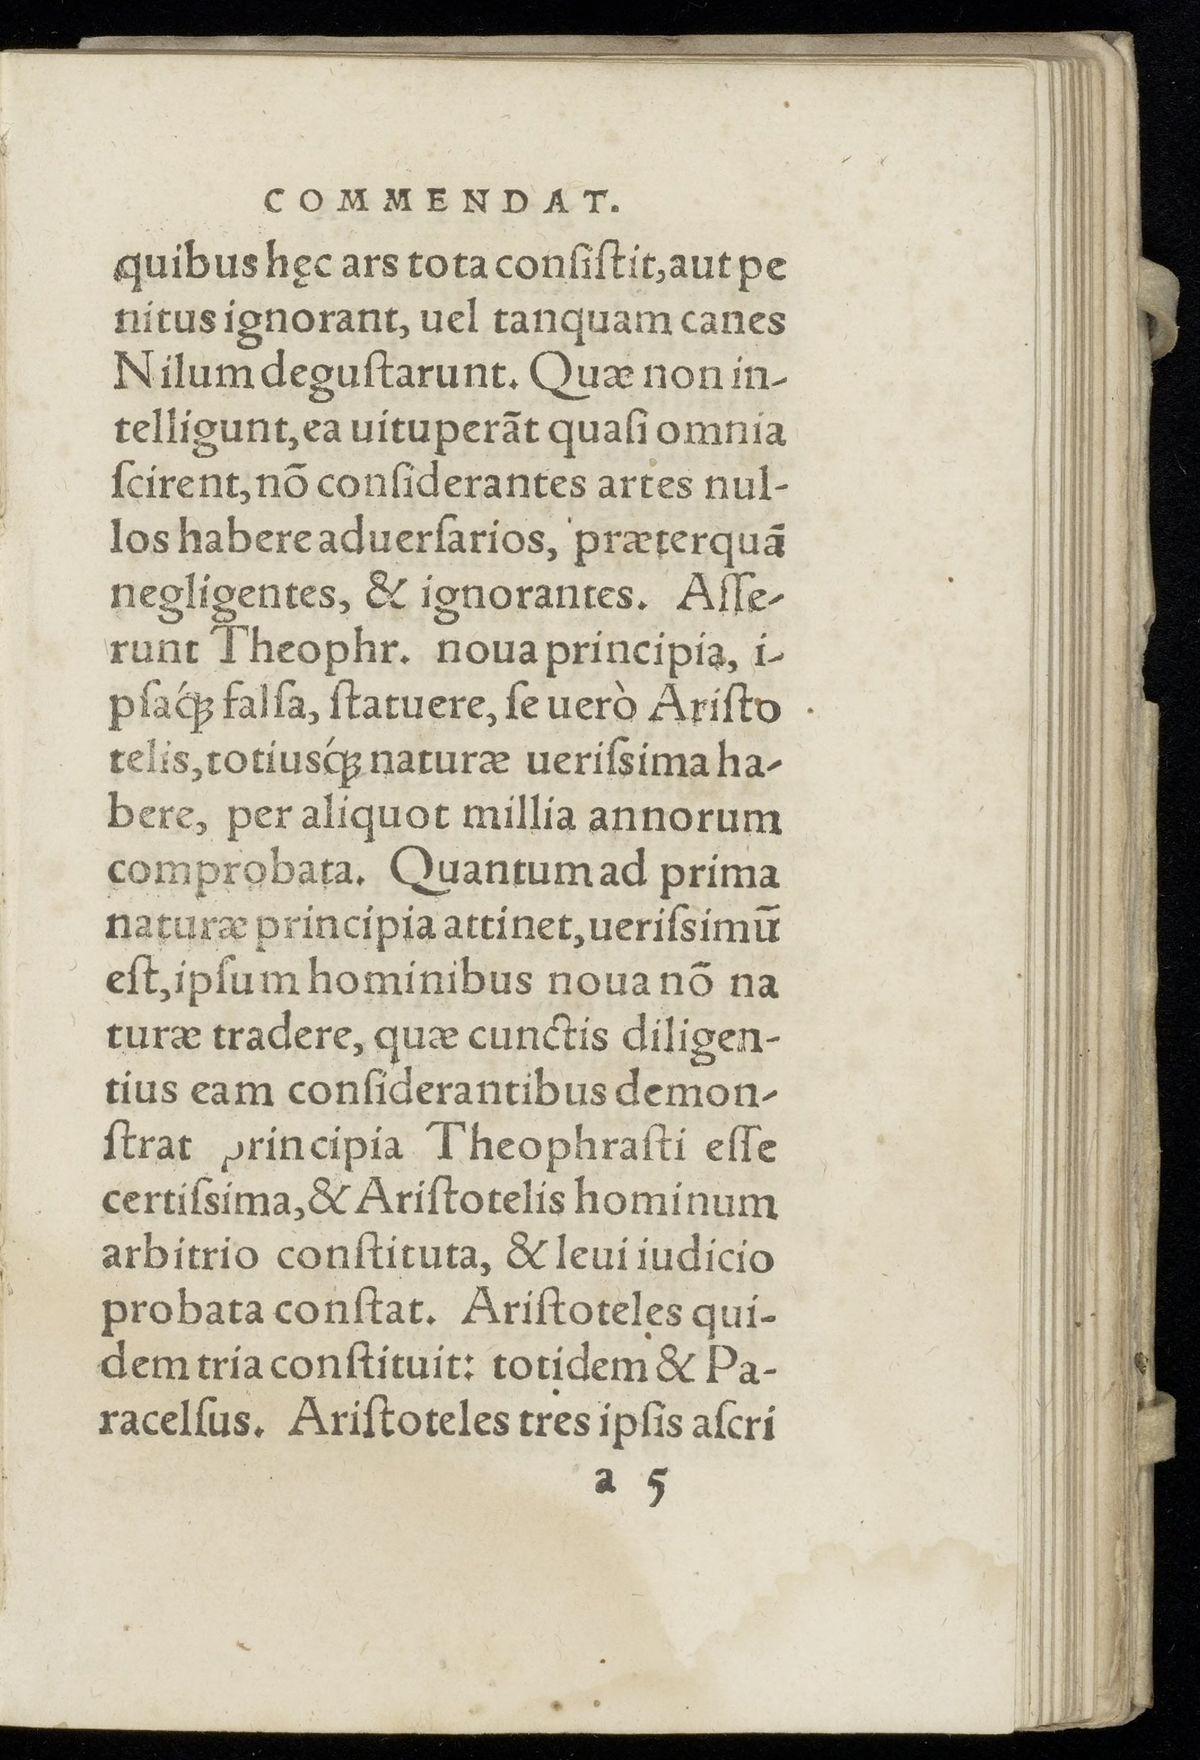 COMMENDAT.
quibus hęc ars tota consiſtit, aut pe
nitus ignorant, uel tanquam canes
Nilum deguſtarunt. Quæ non in-
telligunt, ea uituperãt quaſi omnia
ſcirent, nõ conſiderantes artes nul-
los habere aduerſarios, præterquã
negligentes, & ignorantes. Aſſe-
runt Theophr. noua principia, i-
pſaq́ꝫ falſa, ſtatuere, ſe uerò Ariſto
telis, totiusq́ꝫ naturæ ueriſsima ha-
bere, per aliquot millia annorum
comprobata. Quantum ad prima
naturæ principia attinet, ueriſsimũ
eſt, ipſum hominibus noua nõ na
turæ tradere, quæ cunctis diligen-
tius eam conſiderantibus demon-
ſtrat principia Theophraſti eſſe
certiſsima, & Ariſtotelis hominum
arbitrio conſtituta, & leui iudicio
probata conſtat. Ariſtoteles qui-
dem tria conſtituit: totidem & Pa-
racelſus. Ariſtoteles tres ipſis aſcri
a 5